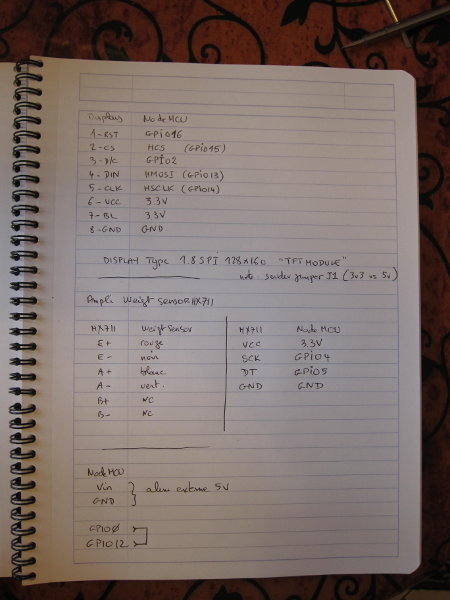 Display NodeMCU
1-RST GPIO16
2-CS HCS (GPIO15)
3-D/C GPIO2
4-DIN HMOSI (GPIO13)
5-CLK HSCLK (GPIO14)
6-VCC 3.3V
7-BL 3.3V
8-GND GND
DISPLAY Type 1.8 SPI 128x160 "TFT MODULE"
note: souder jumper J1 (3v3 vs 5v)
Ampli Weight sensor HX711
HX711 Weight Sensor HX711 NodeMCU
E+ rouge VCC 3.3V
E- noir SCK GPIO4
A+ blanc DT GPIO5
A- vert. GND GND
B+ NC
B- NC
NodeMCU
Vin } alim externe 5V
GND
GPIO0
GPIO12